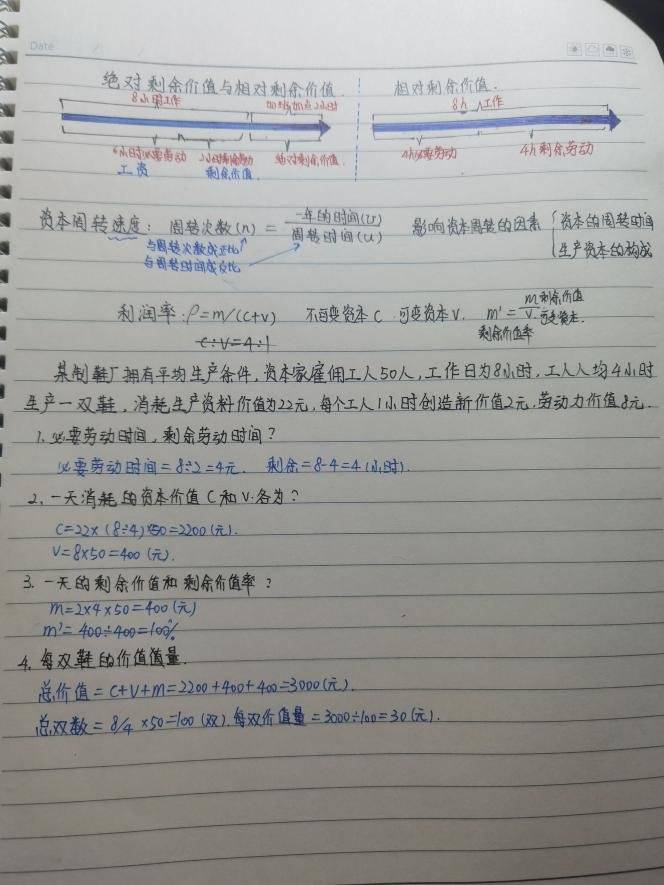 Date
绝对剩余价值与相对剩余价值.
相对剩余价值.
8小时工作
加班加点2小时
8h 工作
6小时必要劳动
2小时剩余劳动
绝对剩余价值
4h必要劳动
4h剩余劳动
工资
剩余价值
资本周转速度: 周转次数(n) = 一年的时间(U) / 周转时间(u) 影响资本周转的因素 { 资本的周转时间
与周转次数成正比
生产资本的构成
与周转时间成反比
利润率: P=m/(C+V) 不可变资本 C 可变资本 V. m'= m剩余价值 / V.可变资本.
剩余价值率
C:V=4:1
某制鞋厂拥有平均生产条件,资本家雇佣工人50人,工作日为8小时,工人人均4小时
生产一双鞋,消耗生产资料价值为22元,每个工人1小时创造新价值2元.劳动力价值8元.
1.必要劳动时间,剩余劳动时间?
必要劳动时间=8÷2=4元. 剩余=8-4=4(小时).
2.一天消耗的资本价值C和V.各为?
C=22×(8÷4)×50=2200(元).
V=8×50=400(元).
3.一天的剩余价值和剩余价值率?
m=2×4×50=400(元)
m'=400÷400=100%
4.每双鞋的价值值量.
总价值=C+V+m=2200+400+400=3000(元).
总双数=8/4×50=100(双).每双价值量=3000÷100=30(元).